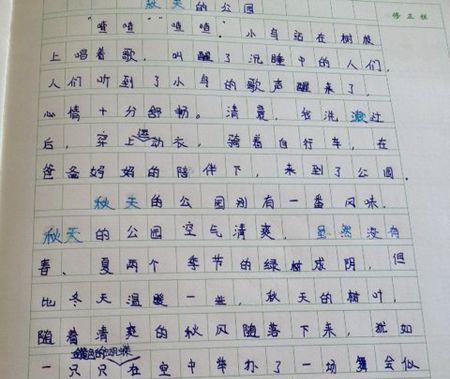 秋天的公园
修正栏
“喳喳”“喳喳”小鸟站在树枝
上唱着歌，叫醒了沉睡中的人们，
人们听到了小鸟的歌声醒来了，
心情十分舒畅。清晨，我洗漱过
后，穿上运动衣，骑着自行车，在
爸爸妈妈的陪伴下，来到了公园。
秋天的公园别有一番风味。
秋天的公园空气清爽，虽然没有
春、夏两个季节的绿树成阴，但
比冬天温暖一些，秋天的树叶，
随着清爽的秋风随落下来，犹如
一只只的蝴蝶在空中举办了一场舞会似